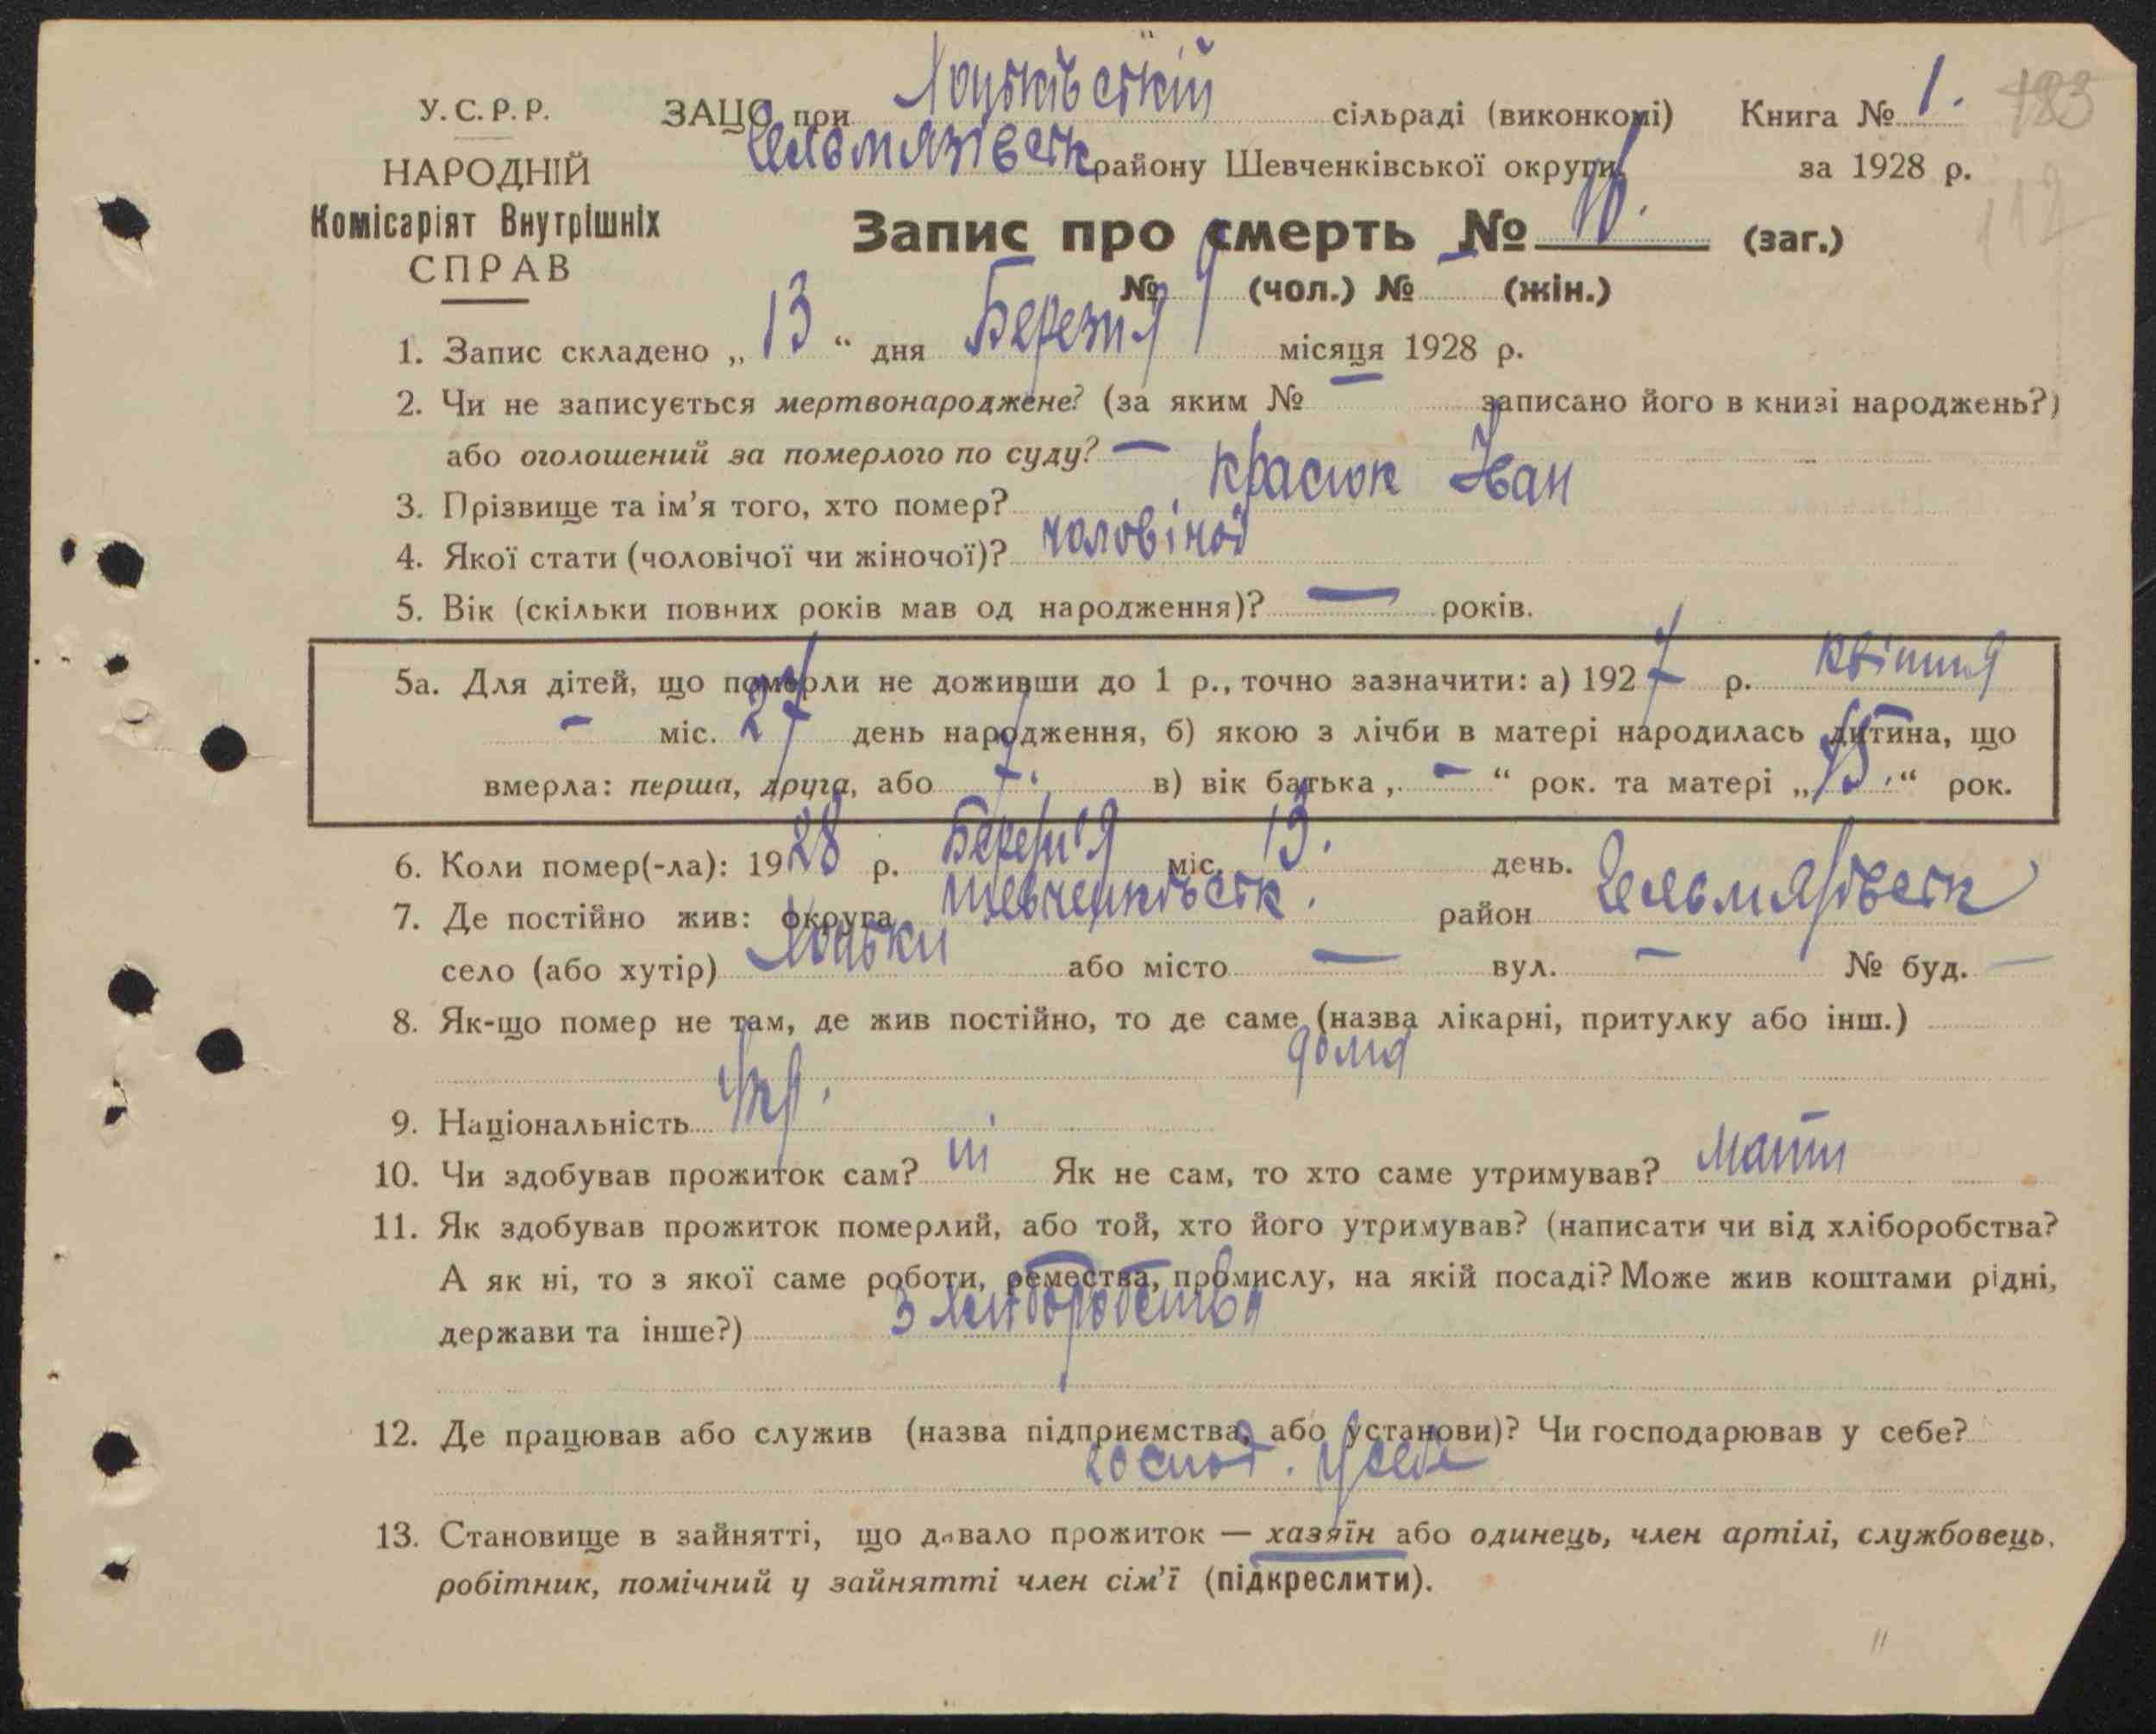 У.С.Р.Р.
НАРОДНІЙ
Комісаріят Внутрішніх
СПРАВ
ЗАЦС при Хоцьківській сільраді (виконкомі) Книга № 1.
Гельмязівськ району Шевченківської округи за 1928 р.
183
112
Запис про смерть № (заг.)
№ 9 (чол.) № — (жін.)
1. Запис складено „ 13 “ дня Березня місяця 1928 р.
2. Чи не записується мертвонароджене? (за яким № — записано його в книзі народжень?)
або оголошений за померлого по суду? —
3. Прізвище та ім’я того, хто помер? Красюк Іван
4. Якої стати (чоловічої чи жіночої)? чоловічої
5. Вік (скільки повних років мав од народження)? — років.
5а. Для дітей, що померли не доживши до 1 р., точно зазначити: а) 1927 р. квітня
— міс. 27 день народження, б) якою з лічби в матері народилась дитина, що
вмерла: перша, друга, або 7. в) вік батька „ — “ рок. та матері „ 45. “ рок.
6. Коли помер(-ла): 1928 р. Березня міс. 13. день.
7. Де постійно жив: округа Шевченківськ. район Гельмязівськ
село (або хутір) Хоцьки або місто — вул. — № буд. —
8. Як-що помер не там, де жив постійно, то де саме (назва лікарні, притулку або інш.)
дома
9. Національність Укр.
10. Чи здобував прожиток сам? ні Як не сам, то хто саме утримував? Мати
11. Як здобував прожиток померлий, або той, хто його утримував? (написати чи від хліборобства?
А як ні, то з якої саме роботи, ремества, промислу, на якій посаді? Може жив коштами рідні,
держави та інше?) З хліборобства
12. Де працював або служив (назва підприємства, або установи)? Чи господарював у себе?
господ. у себе
13. Становище в зайнятті, що давало прожиток — хазяїн або одинець, член артілі, службовець,
робітник, помічний у зайнятті член сім’ї (підкреслити).
11